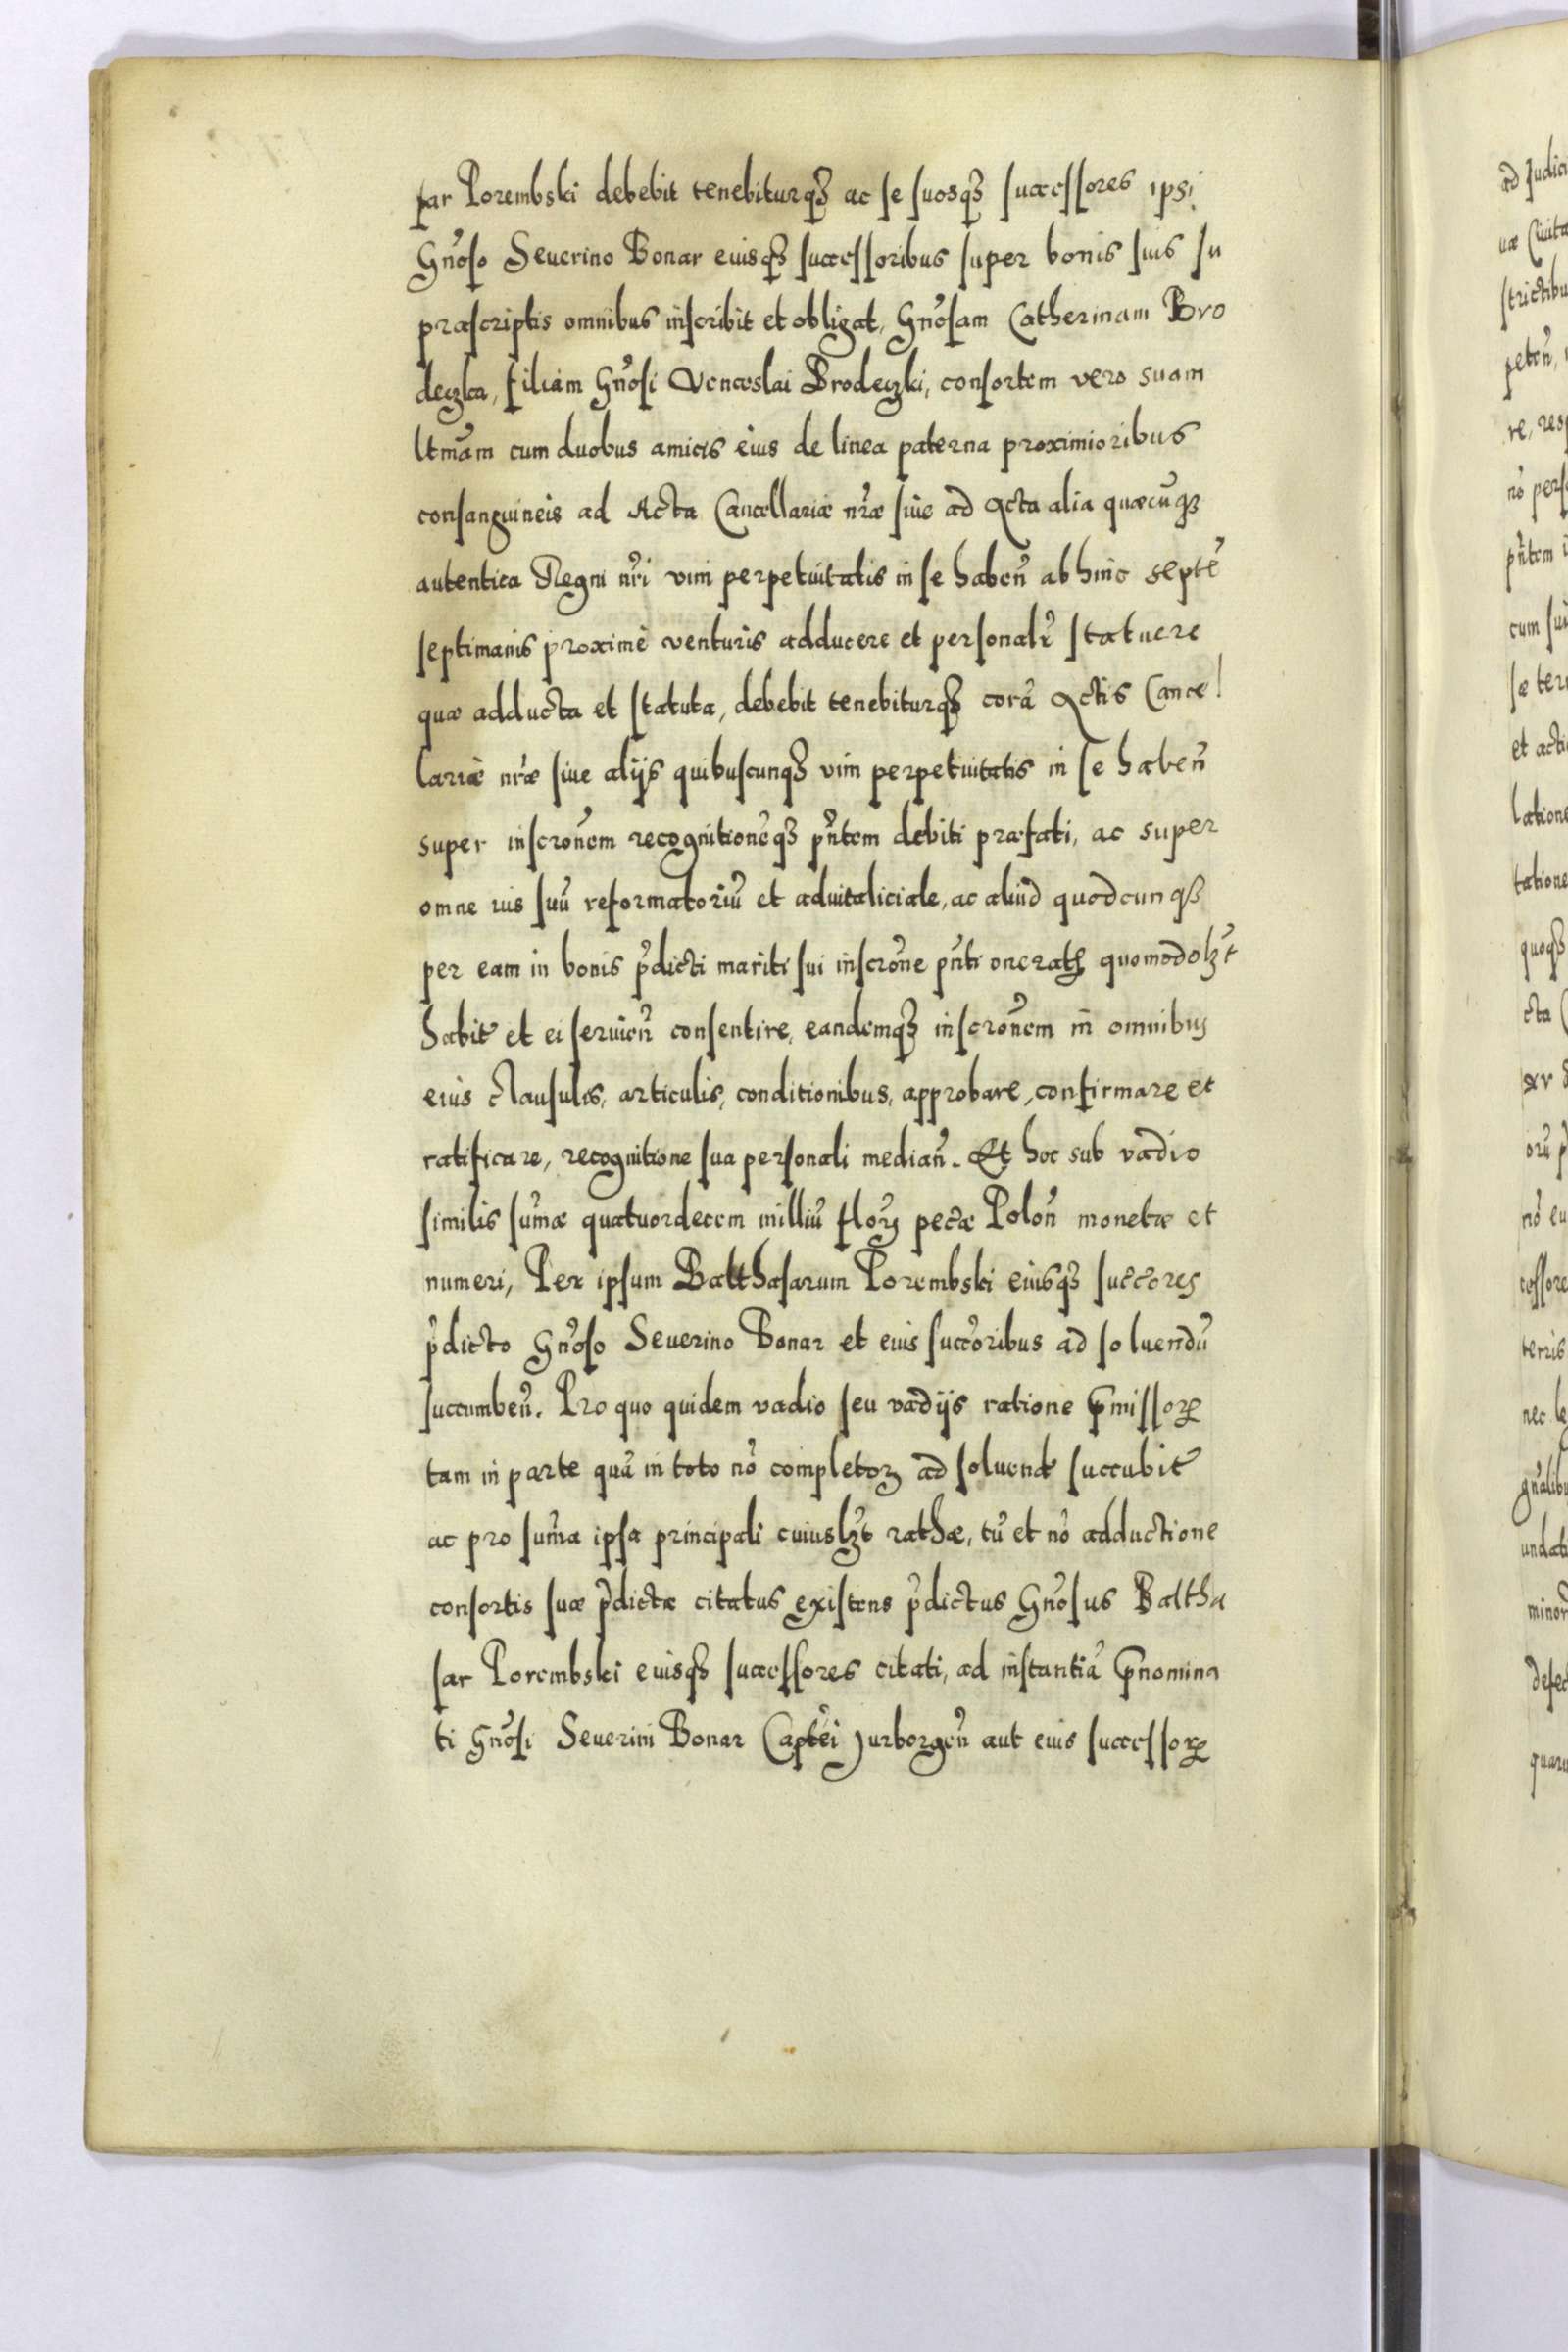 sar Porembski debebit tenebiturqꝫ ac se suosqꝫ successores ipsi
Gn̄oso Seuerino Bonar eiusqꝫ successoribus super bonis suis su
præscriptis omnibus inscribit et obligat, Gn̄osam Catherinam Bro
deczka, filiam Gn̄osi Venceslai Brodeczki, consortem vero suam
ltm̄am cum duobus amicis eius de linea paterna proximioribus
consanguineis ad Acta Cancellariæ nr̄æ siue ad Acta alia quæcūqꝫ
autentica Regni nr̄i vim perpetuitatis in se haben̄ ab hinc septē
septimanis proximè venturis adducere et personalr̄ statuere
quæ adducta et statuta, debebit tenebiturqꝫ corā Actis Cancel
lariæ nr̄æ siue alijs quibuscunqꝫ vim perpetuitatis in se haben̄
super inscron̄em recognitionēqꝫ pn̄tem debiti præfati, ac super
omne ius suū reformatoriū et aduitaliciale, ac aliud quodcunqꝫ
per eam in bonis p̄dicti mariti sui inscron̄e pn̄ti onerath quomodolꝫt
habit̄ et ei seruien̄ consentire, eandemqꝫ inscron̄em in omnibus
eius clausulis, articulis, conditionibus, approbare, confirmare et
ratificare, recognitione sua personali median̄. Et hoc sub vadio
similis sum̄æ quatuordecem milliū floꝝ pecǣ Polon̄ monetæ et
numeri, Per ipsum Balthasarum Porembski eiusqꝫ succ̄ores
p̄dicto Gn̄oso Seuerino Bonar et eius succ̄oribus ad soluendū
succumben̄. Pro quo quidem vadio seu vadijs ratione p̄missoꝝ
tam in parte quā in toto nō completoꝝ ad soluend succubit̄
ac pro sum̄a ipsa principali cuiuslꝫt rathæ, tū et nō adductione
consortis suæ p̄dictæ citatus existens p̄dictus Gn̄osus Baltha
sar Porembski eiusqꝫ successores citati, ad instantiā p̄nomina
ti Gn̄osi Seuerini Bonar Captēi Jurborgen̄ aut eius successoꝝ